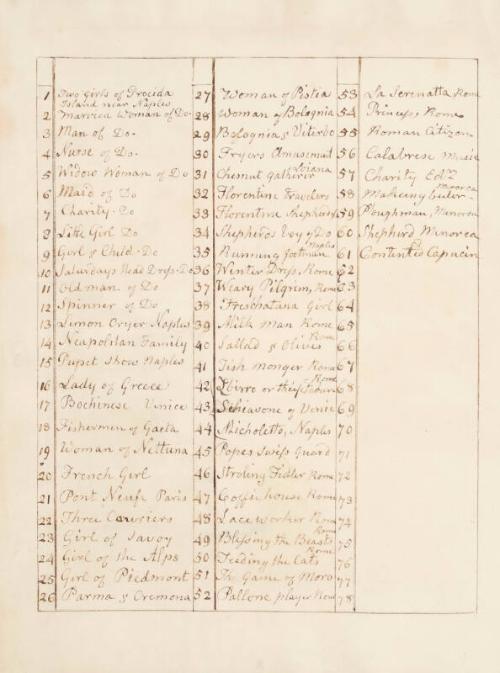 1 Two Girls of Procida
Island near Naples
2 Married Woman of Do.
3 Man of Do.
4 Nurse of Do.
5 Widow Woman of Do
6 Maid of Do
7 Charity. Do
8 Little Girl Do
9 Girl & Child. Do
10 Saturdays Head Dress. Do
11 Old man of Do
12 Spinner of Do
13 Limon Cryer Naples
14 Neapolitan Family
15 Pupet Show Naples
16 Lady of Greece
17 Venice
18 Fishermen of Gaeta
19 Woman of Nettuna
20 French Girl
21 Pont Neuf Paris
22 Three
23 Girl of Savoy
24 Girl of the Alps
25 Girl of Piedmont
26 Parma & Cremona
27 Woman of Pistia
28 Woman of Bolognia
29 Bolognia & Viterbo
30 Fryers Amusemnt
31 Chesnut Gatherer
32 Florentine Travelers
33 Florentine Shepherd
34 Shepherds Boy of Do
35 Running footman Naples
36 Winter Dress, Rome
37 Weary Pilgrim, Rome
38 Girl
39 Milk Man Rome
40 Sallad & Olives Rome
41 Fish monger Rome
42 Rome
43 Schiavone of Venice
44 Micholetto, Naples
45 Popes Swiss Guard
46 Stroling Fidler Rome
47 Coffee house Rome
48 Lace worker Rome
49 Blessing the Beasts Rome
50 Feeding the Cats Rome
51 The Game of Moro
52 Pallone player Rome
53 La Serenatta Rome
54 Princess Rome
55 Roman Citizen
56 Calabrese Music
57 Charity
58 Minorca
59 Ploughman, Minorca
60 Shepherd Minorca
61 Contented Capucin
62
63
64
65
66
67
68
69
70
71
72
73
74
75
76
77
78